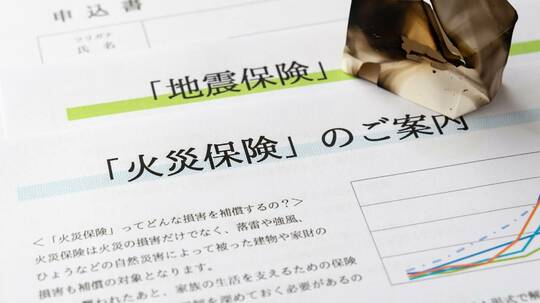 申込書
フリガナ
氏 名
「地震保険」
「火災保険」のご案内
<「火災保険」ってどんな損害を補償するの?>
火災保険は火災の損害だけでなく、落雷や強風、
ひょうなどの自然災害によって被った建物や家財の
損害も補償の対象となります。
われたあと、家族の生活を支えるための保険
を深めておく必要があるの